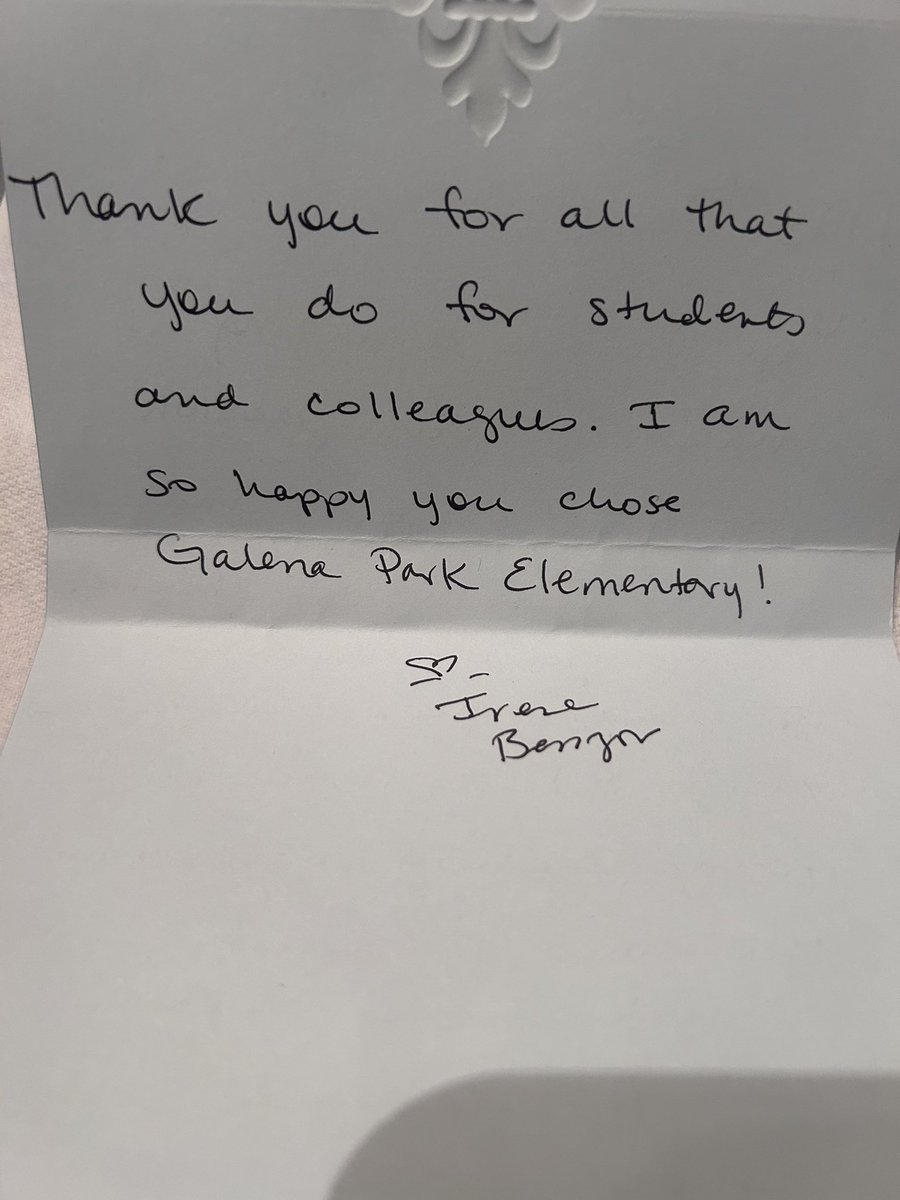 Thank you for all that
you do for students
and colleagues. I am
so happy you chose
Galena Park Elementary!
♡-
Irene
Benzor